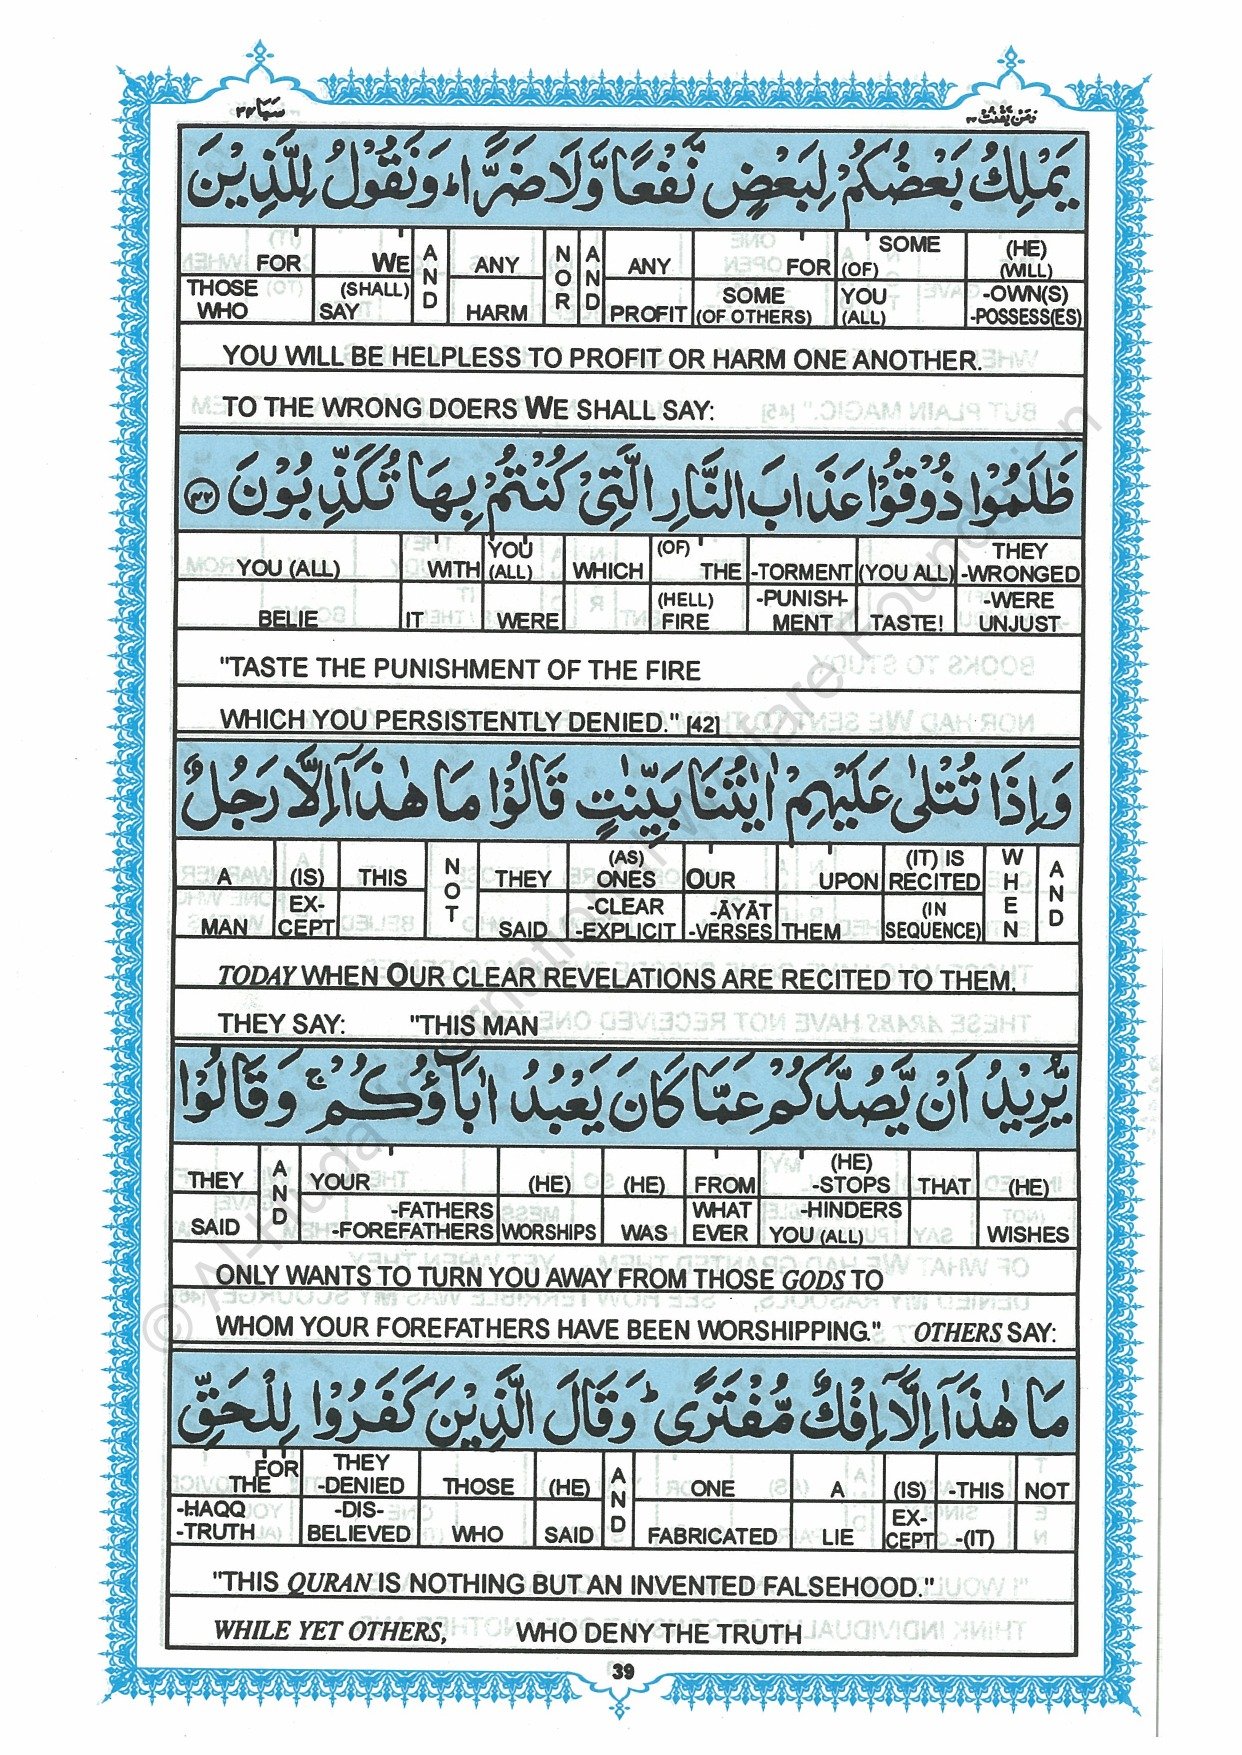 سَبَا ٣٤
وَمَنْ يَّقْنُتْ ٢٢
يَمْلِكُ بَعْضُكُمْ لِبَعْضٍ نَّفْعًا وَّلَا ضَرًّا ؕ وَنَقُوْلُ لِلَّذِيْنَ
FOR WE AND ANY NOR AND ANY FOR SOME (OF) (HE) (WILL)
THOSE WHO (SHALL) SAY HARM PROFIT SOME (OF OTHERS) YOU (ALL) -OWN(S) -POSSESS(ES)
YOU WILL BE HELPLESS TO PROFIT OR HARM ONE ANOTHER.
TO THE WRONG DOERS WE SHALL SAY:
ظَلَمُوْا ذُوْقُوْا عَذَابَ النَّارِ الَّتِيْ كُنْتُمْ بِهَا تُكَذِّبُوْنَ ﴿٤٢﴾
YOU (ALL) WITH YOU (ALL) WHICH (OF) THE -TORMENT (YOU ALL) THEY -WRONGED
BELIE IT WERE (HELL) FIRE -PUNISH-MENT TASTE! -WERE UNJUST
"TASTE THE PUNISHMENT OF THE FIRE
WHICH YOU PERSISTENTLY DENIED." [42]
وَاِذَا تُتْلٰى عَلَيْهِمْ اٰيٰتُنَا بَيِّنٰتٍ قَالُوْا مَا هٰذَآ اِلَّا رَجُلٌ
A (IS) THIS NOT THEY (AS) ONES OUR UPON (IT) IS RECITED WHEN AND
MAN EX-CEPT SAID -CLEAR -EXPLICIT -ĀYĀT -VERSES THEM (IN SEQUENCE)
TODAY WHEN OUR CLEAR REVELATIONS ARE RECITED TO THEM,
THEY SAY: "THIS MAN
يُّرِيْدُ اَنْ يَّصُدَّكُمْ عَمَّا كَانَ يَعْبُدُ اٰبَآؤُكُمْ ۚ وَقَالُوْا
THEY AND YOUR (HE) (HE) FROM (HE) -STOPS THAT (HE)
SAID -FATHERS -FOREFATHERS WORSHIPS WAS WHAT EVER -HINDERS YOU (ALL) WISHES
ONLY WANTS TO TURN YOU AWAY FROM THOSE GODS TO
WHOM YOUR FOREFATHERS HAVE BEEN WORSHIPPING." OTHERS SAY:
مَا هٰذَآ اِلَّآ اِفْكٌ مُّفْتَرًى ؕ وَقَالَ الَّذِيْنَ كَفَرُوْا لِلْحَقِّ
FOR THE THEY -DENIED THOSE (HE) AND ONE A (IS) -THIS NOT
-HAQQ -TRUTH -DIS-BELIEVED WHO SAID FABRICATED LIE EX-CEPT -(IT)
"THIS QURAN IS NOTHING BUT AN INVENTED FALSEHOOD."
WHILE YET OTHERS, WHO DENY THE TRUTH
39
© Al-Huda International Welfare Foundation